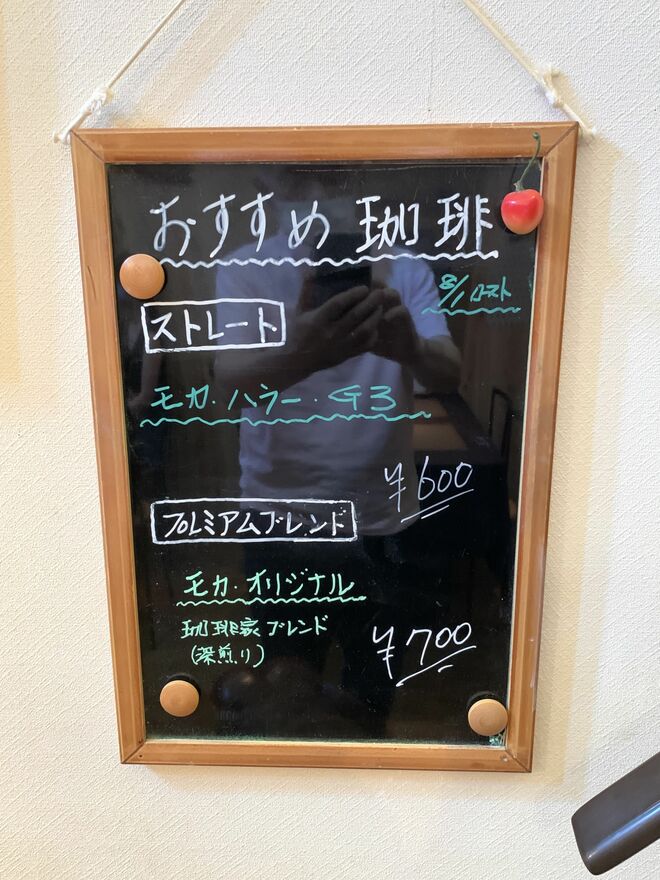 おすすめ 珈琲
8/1 ロースト
ストレート
モカ・ハラー・G3
¥600
プレミアムブレンド
モカ・オリジナル
珈琲家ブレンド
(深煎り)
¥700